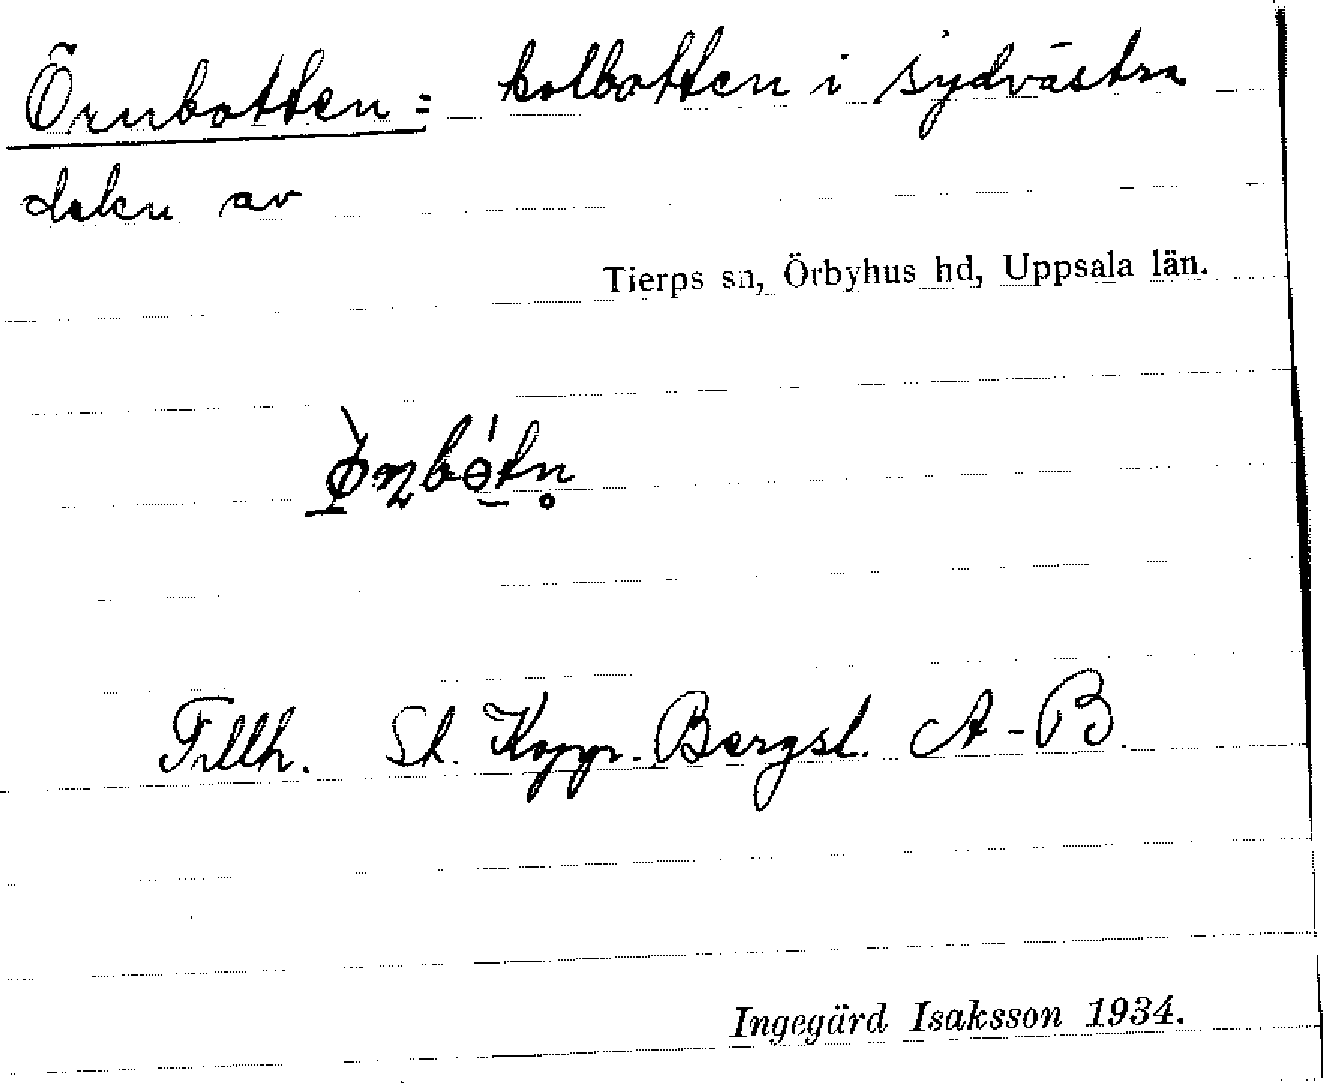 Örnbotten = kolbotten i sydvästra
delen av
Tierps sn, Örbyhus hd, Uppsala län.
Tillh. St. Kopp. Bergsl. A-B.
Ingegärd Isaksson 1934.